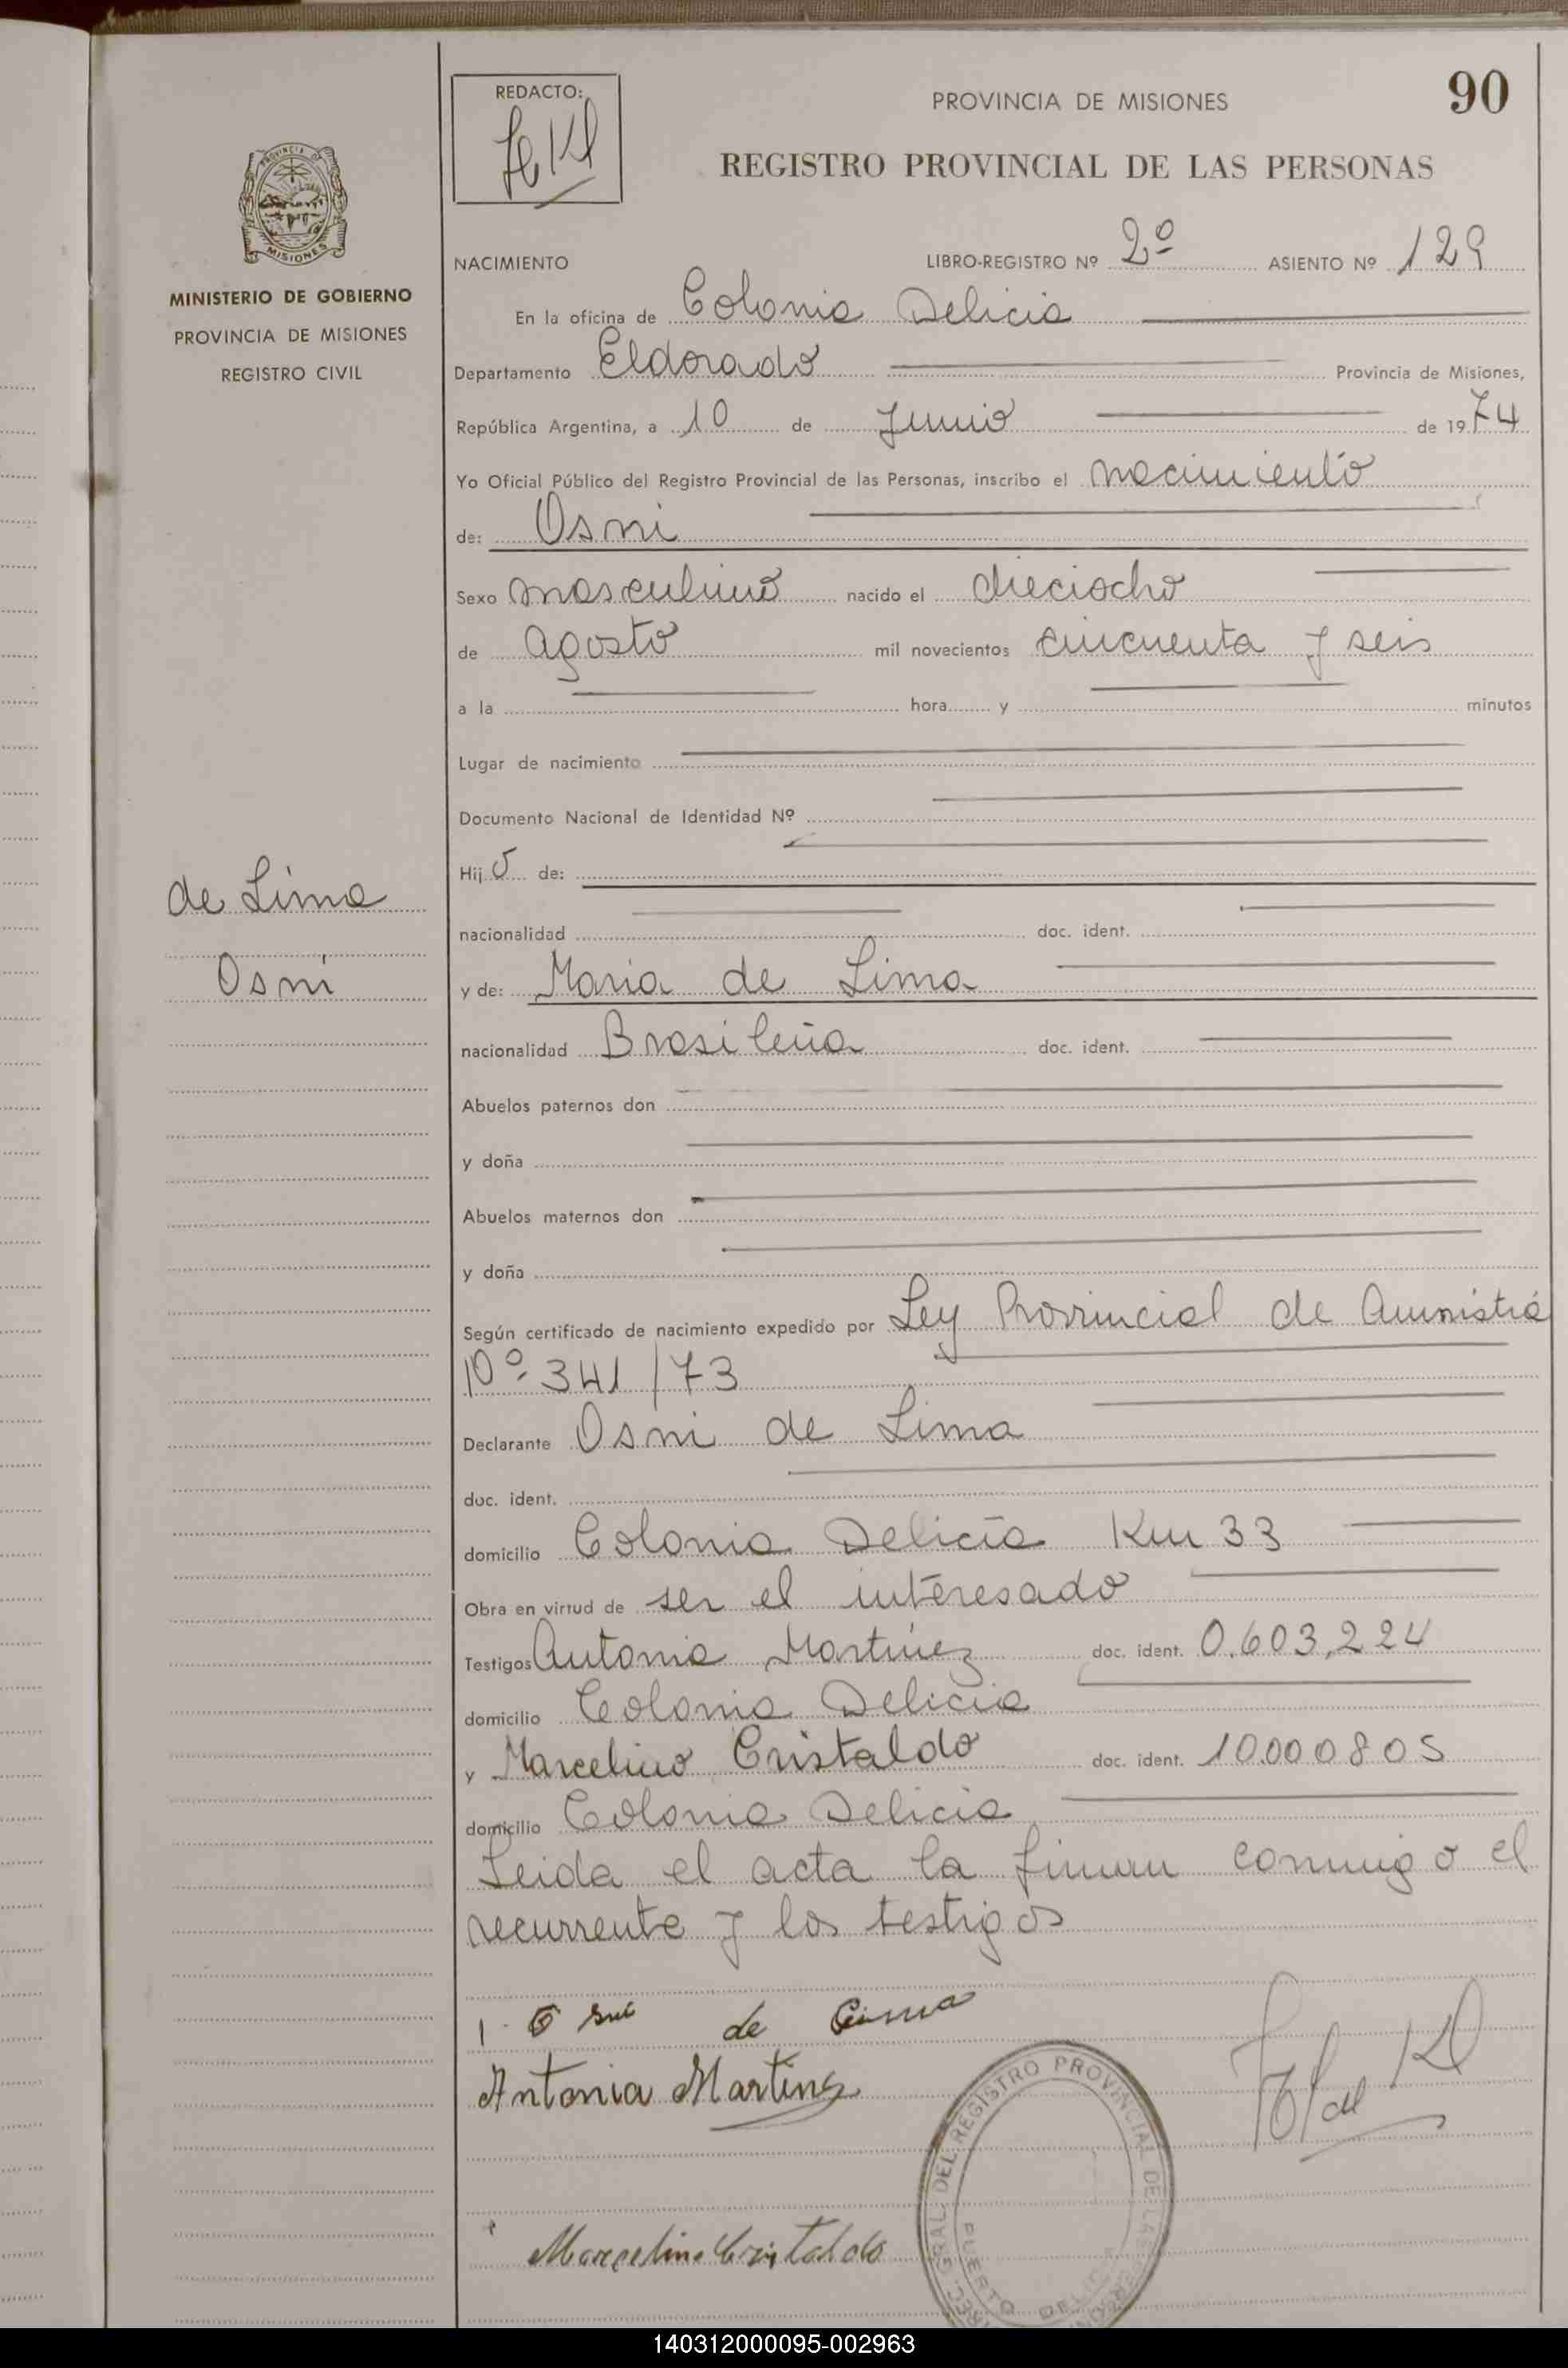 REDACTO:
PROVINCIA DE MISIONES
90
REGISTRO PROVINCIAL DE LAS PERSONAS
PROVINCIA DE
MISIONES
MINISTERIO DE GOBIERNO
PROVINCIA DE MISIONES
REGISTRO CIVIL
NACIMIENTO LIBRO-REGISTRO Nº 2º ASIENTO Nº 129
En la oficina de Colonia Delicia
Departamento Eldorado Provincia de Misiones,
República Argentina, a 10 de Junio de 1974
Yo Oficial Público del Registro Provincial de las Personas, inscribo el nacimiento
de: Osni
Sexo masculino nacido el dieciocho
de agosto mil novecientos cincuenta y seis
a la hora y minutos
Lugar de nacimiento
Documento Nacional de Identidad Nº
Hijo de:
de Lima
Osni
nacionalidad doc. ident.
y de: Maria de Lima
nacionalidad Brasileña doc. ident.
Abuelos paternos don
y doña
Abuelos maternos don
y doña
Según certificado de nacimiento expedido por Ley Provincial de Amnistia
Nº 341/73
Declarante Osni de Lima
doc. ident.
domicilio Colonia Delicia Km 33
Obra en virtud de ser el interesado
Testigos Antonia Martinez doc. ident. 0.603.224
domicilio Colonia Delicia
y Marcelino Cristaldo doc. ident. 10.000805
domicilio Colonia Delicia
Leida el acta la firman conmigo el
recurrente y los testigos
Osni de Lima
Antonia Martinez
Marcelino Cristaldo
GRAL. DEL REGISTRO PROVINCIAL DE LAS
PUERTO DELICIA
140312000095-002963